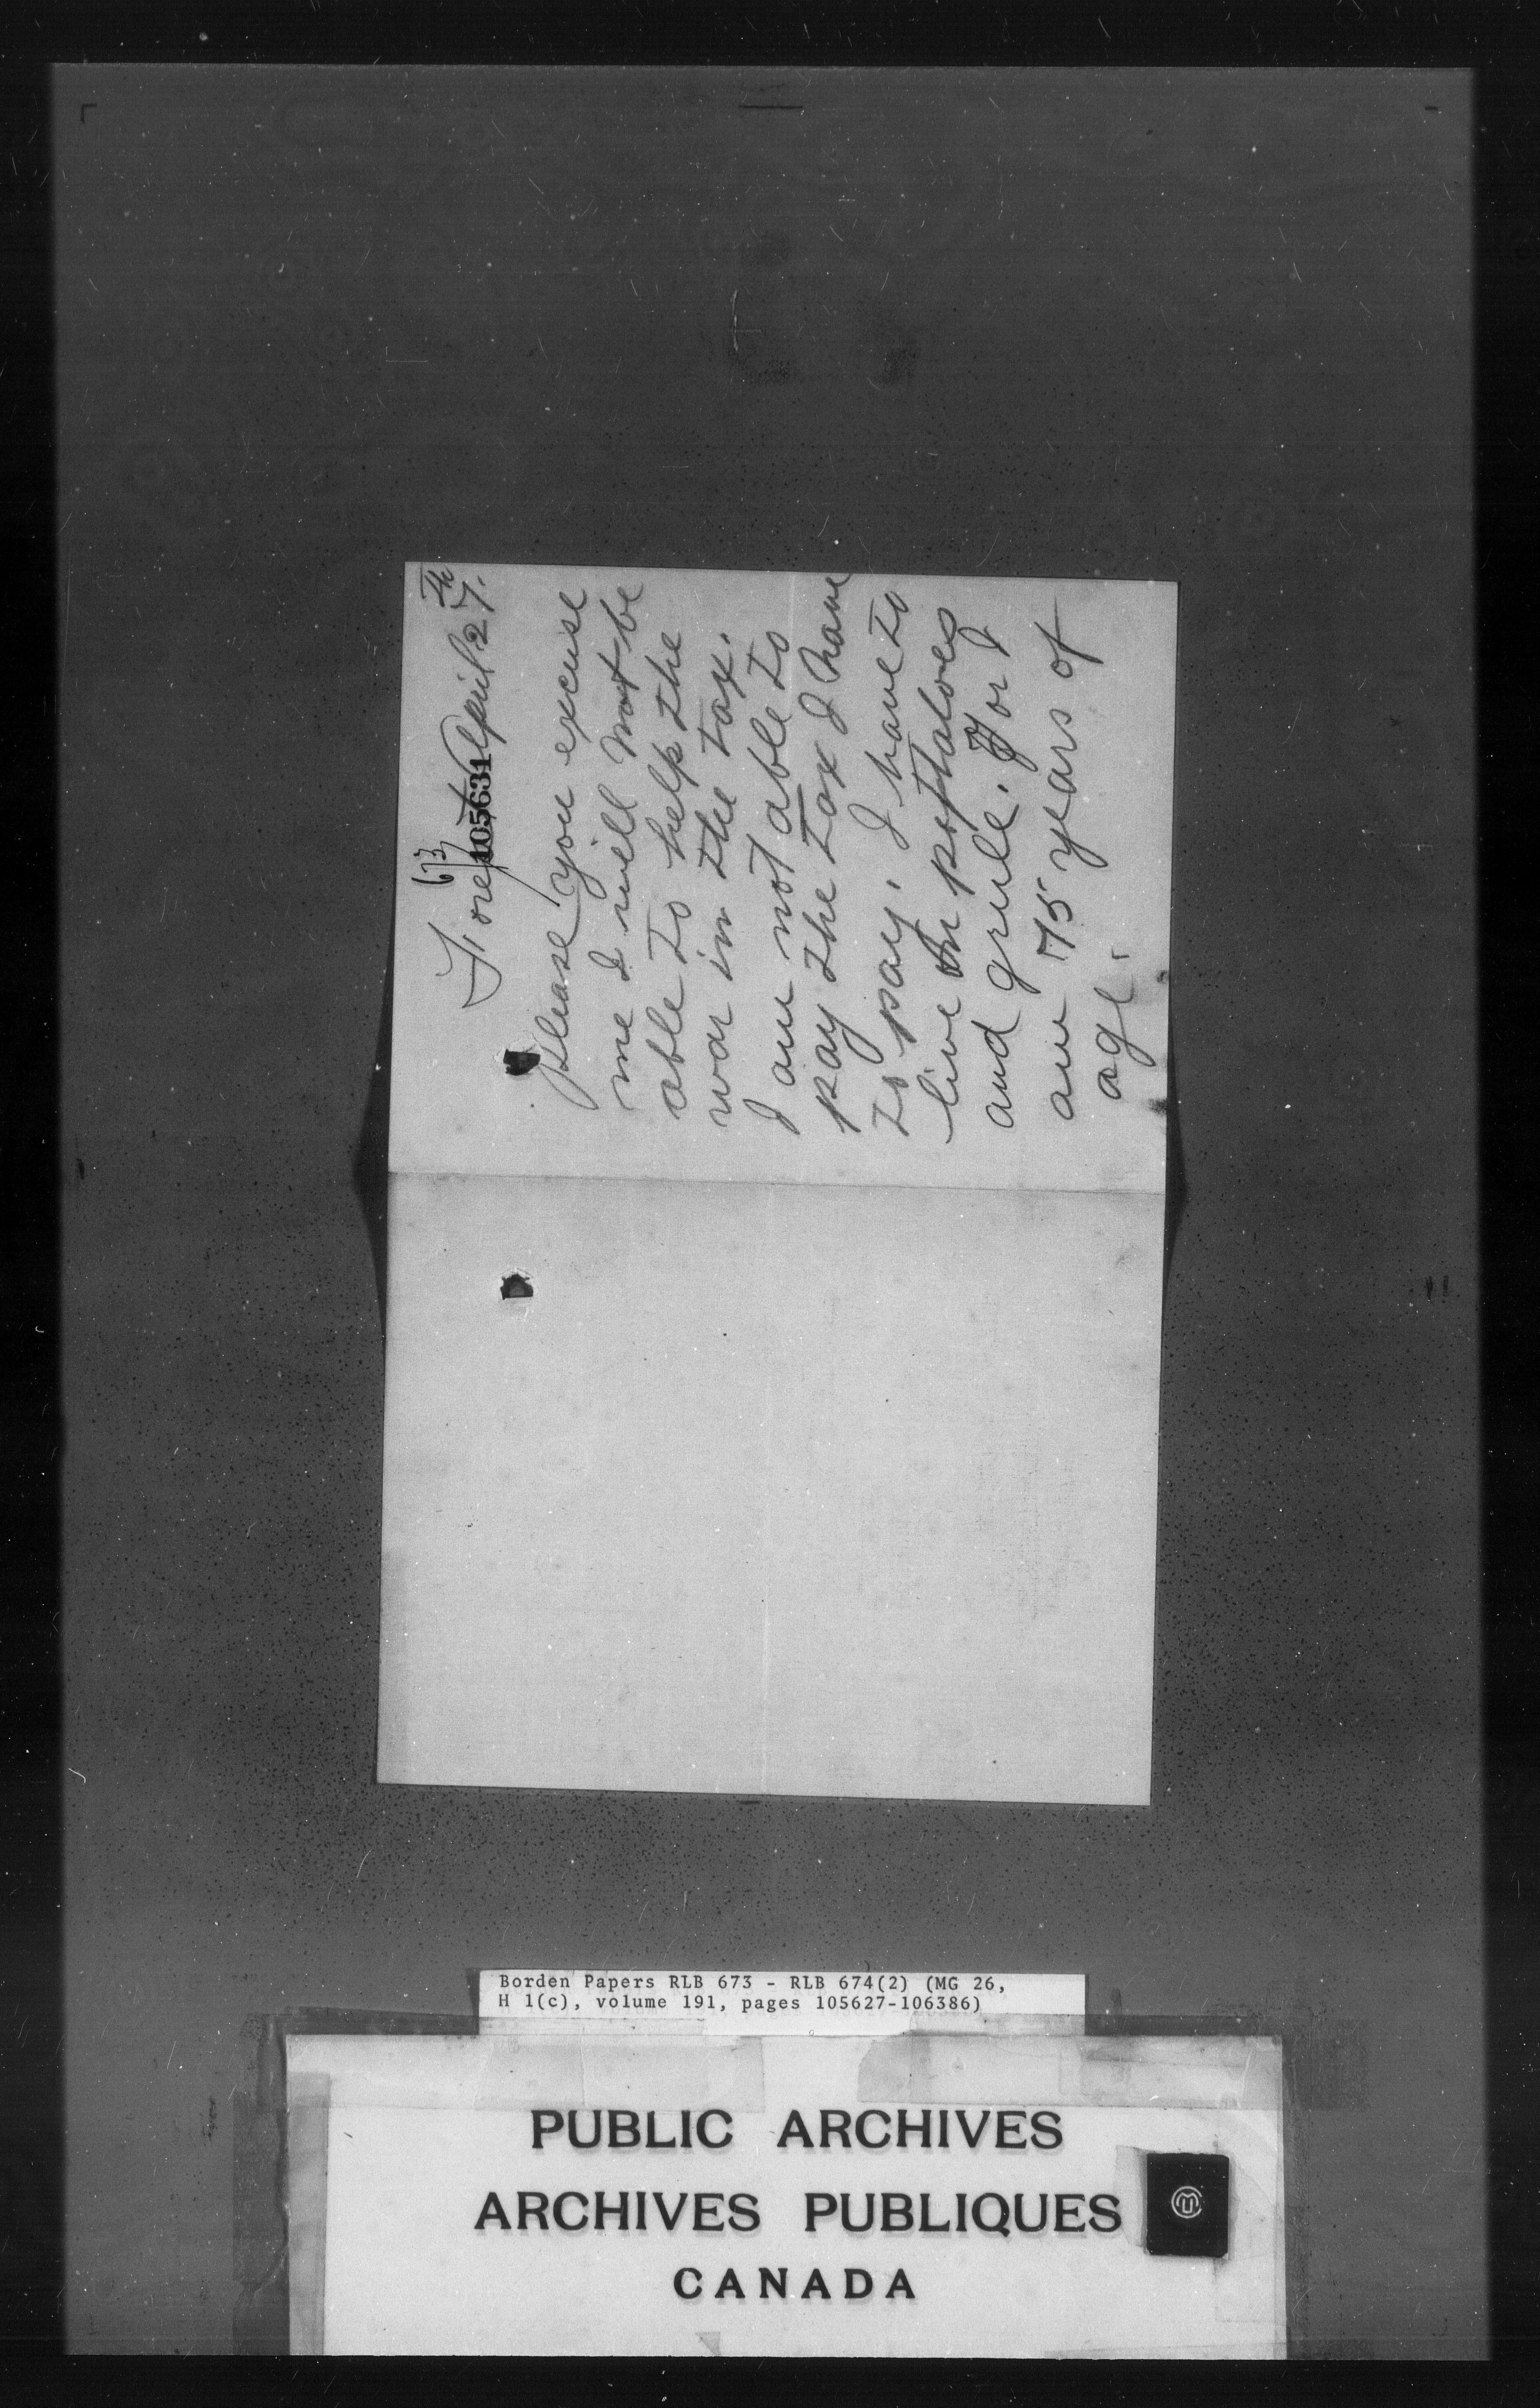 673
Forest April 27th
105631
Please you excuse
me I will not be
able to help the
war in the tax.
I am not able to
pay the tax I have
to pay. I have to
live on pottatoes
and grule. For I
am 75 years of
age.
Borden Papers RLB 673 - RLB 674(2) (MG 26,
H 1(c), volume 191, pages 105627-106386)
PUBLIC ARCHIVES
ARCHIVES PUBLIQUES
CANADA